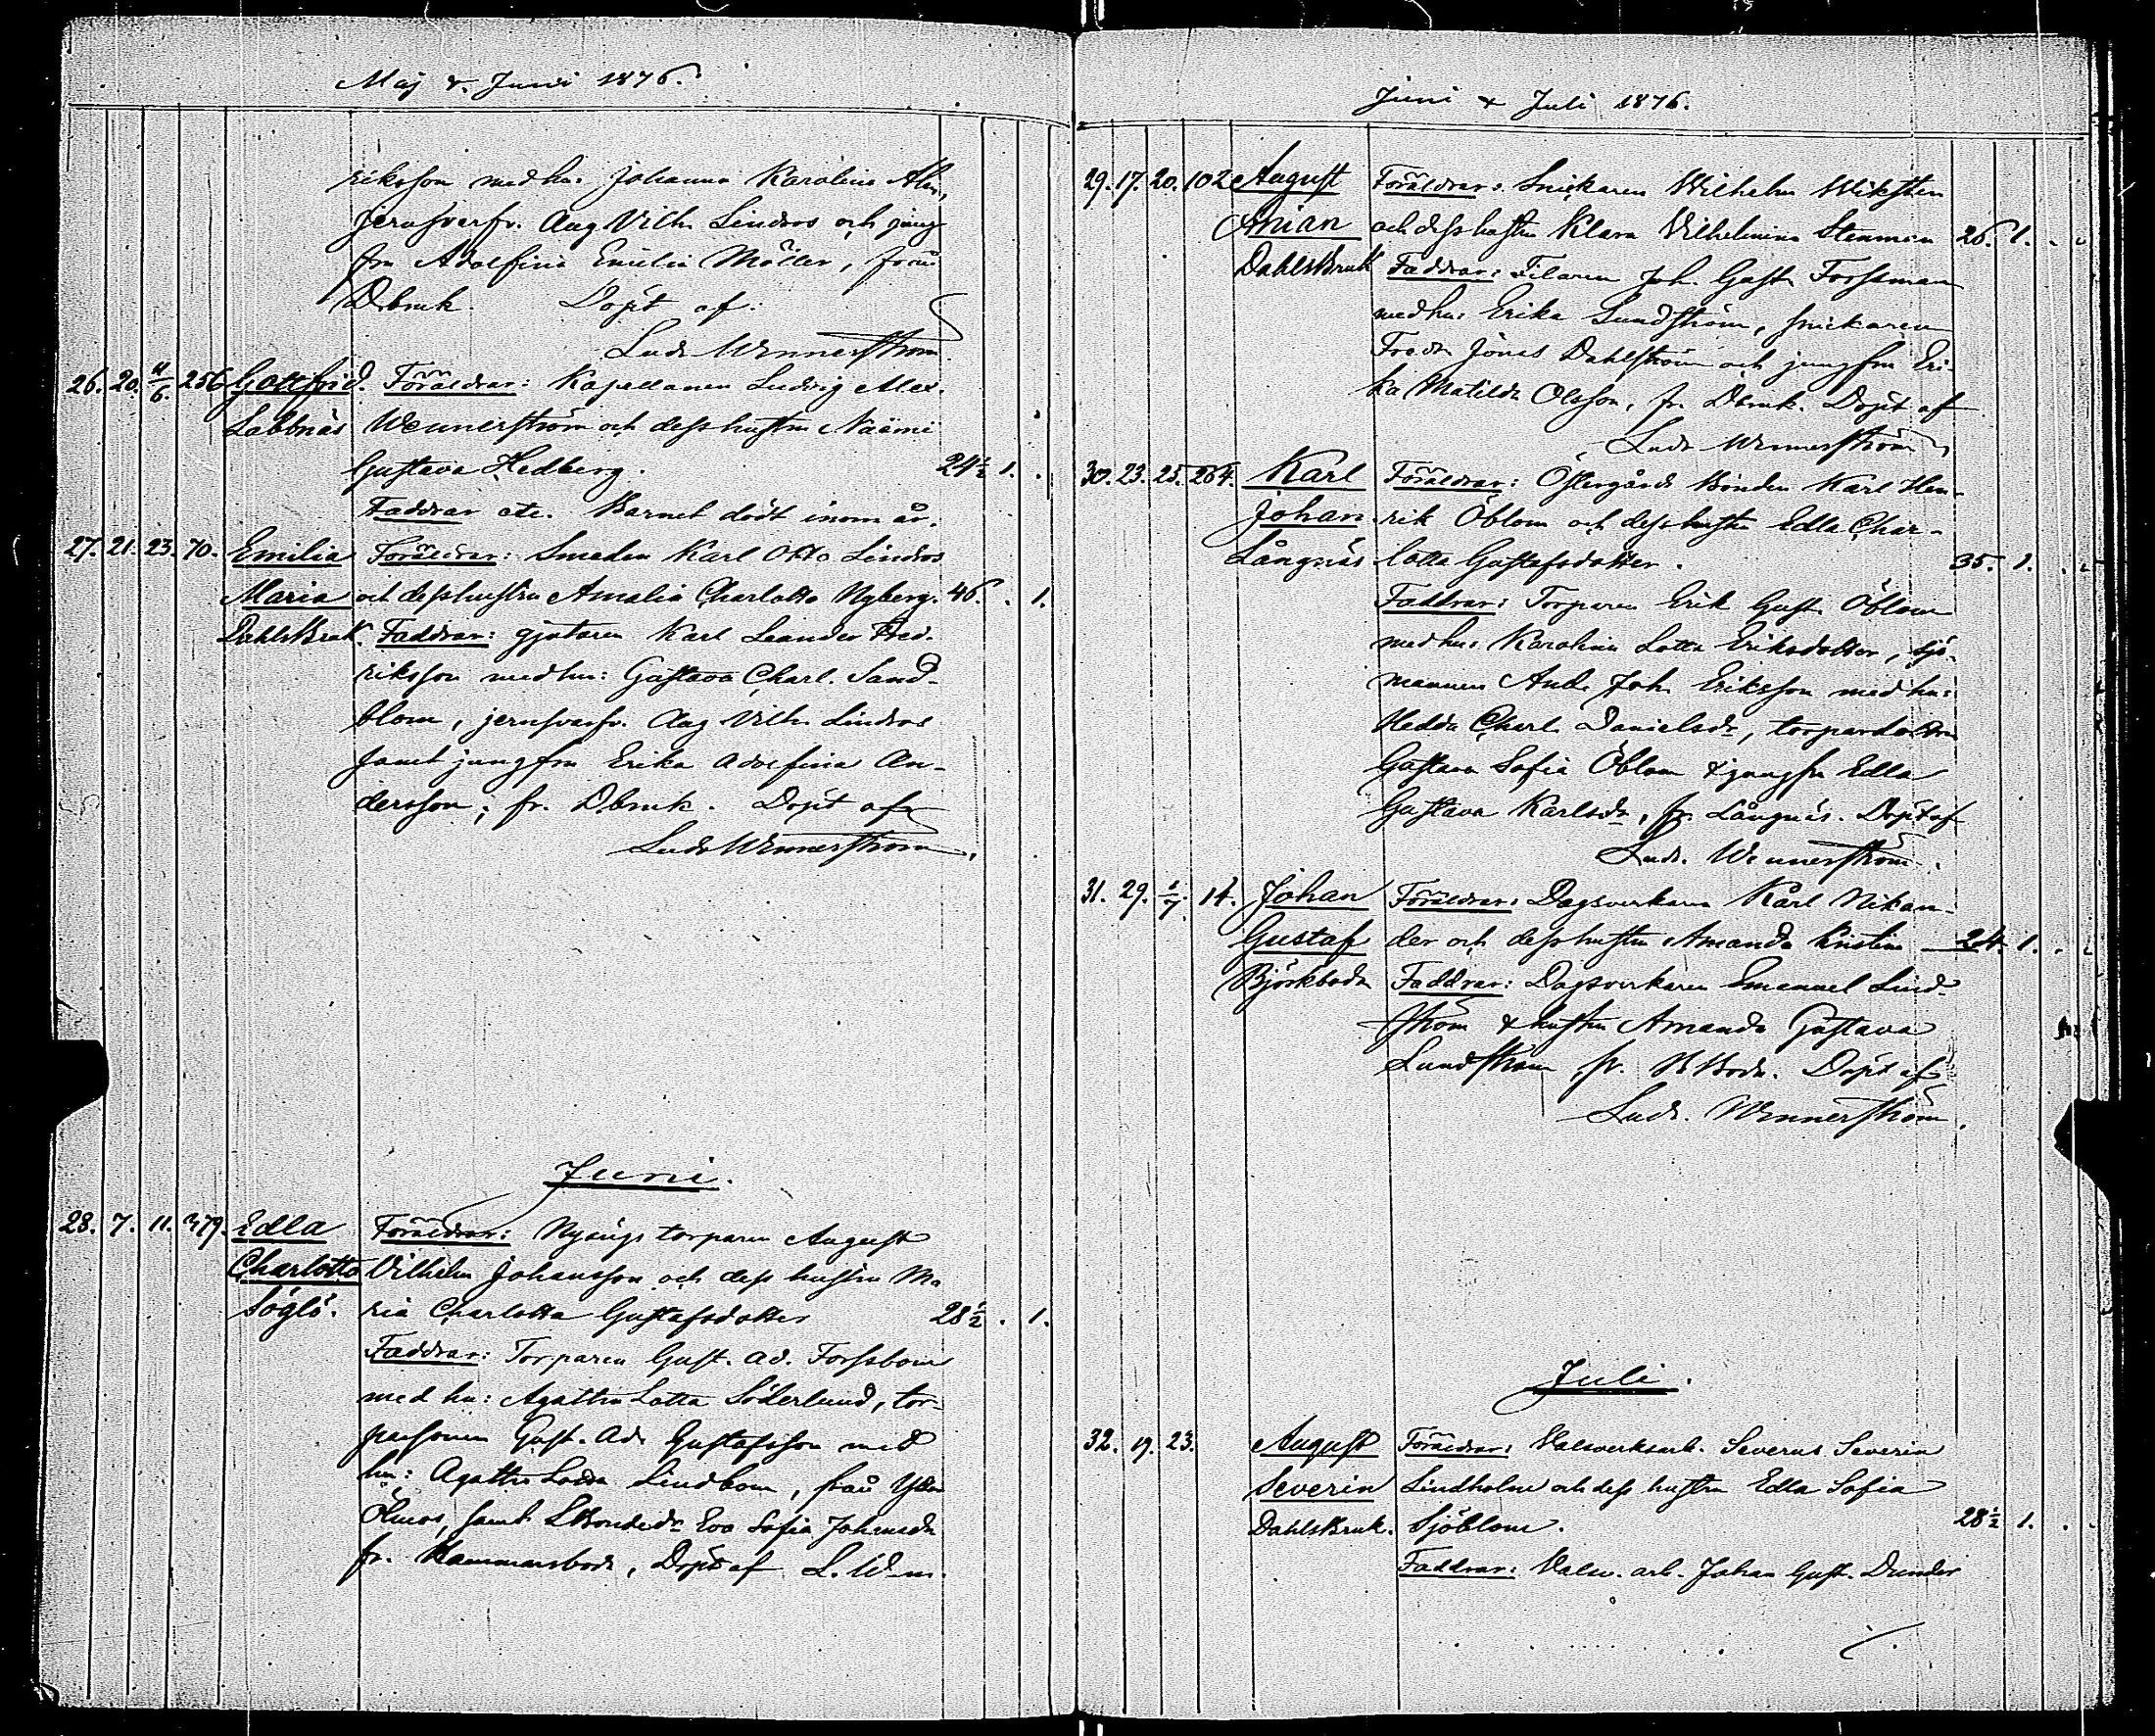 Maj & Juni 1876.
riksson med hu: Johanna Karolina
jernsvarfv. Aug. Vilh. Lindros och jung
fru Adolfina Emilia Möller, från
D.bruk. Döpt af:
Ludv. Wennerström
26. 20. 11/6. 256 Gottfrid. Föräldrar: Kapellanen Ludvig Alex.
Labbnäs Wennerström och dess hustru Naëmi
Gustava Hedberg. 24½ 1.
Faddrar etc. Barnet dödt inom år.
27. 21. 23. 70. Emilia Föräldrar: Smeden Karl Otto Lindros
Maria och dess hustru Amalia Charlotta Nyberg. 46. . 1.
DahlsBruk. Faddrar: gjutaren Karl Leander Fred-
riksson med hu: Gustava Charl. Sand-
blom, jernsvarfv. Aug. Vilh. Lindros
samt jungfru Erika Adolfina An-
dersson; fr. Dbruk. Döpt af
Ludv Wennerström.
Juni.
28. 7. 11. 379. Edla Föräldrar: Nyängs torparen August
Charlotta Vilhelm Johansson och dess hustru Ma
Söglö. ria Charlotta Gustafsdotter 28½ . 1.
Faddrar: Torparen Gust. Ad. Forssbom
med hu: Agatha Lotta Söderlund, tor-
parsonen Gust. Ad. Gustafsson med
hu: Agatha Lovisa Lindbom, från Ytter
Ölmos, samt Eva Sofia Johansdr
fr. Hammarsboda, Döpt af L. W-m.
Juni & Juli 1876.
29. 17. 20. 102 August Föräldrar: Snickaren Wilhelm Wiksten
Anian och dess hustru Klara Vilhelmina Stenman 26. 1. .
DahlsBruk Faddrar: Filaren Joh. Gust. Forssman
med hu: Erika Sundström, snickaren
Fredr. Jönas Dahlström och jungfru Eri-
ka Matilda Olsson, fr. Dbruk. Döpt af
Ludv Wennerström
30. 23. 25. 264. Karl Föräldrar: Östergårds Bonden Karl Hen-
Johan. rik Öblom och dess hustru Edla Char-
Långnäs lotta Gustafsdotter. 35. 1. .
Faddrar: Torparen Erik Gust. Öblom
med hu: Karolina Lotta Eriksdotter, sjö-
mannen And. Joh. Eriksson med hu:
Hedda Charl. Danielsdr, torpardottren
Gustava Sofia Öblom & jungfru Edla
Gustava Karlsdr, fr. Långnäs. Döpt af
Ludv. Wennerström.
31. 29. 2/7. 14. Johan Föräldrar: Dagsverkaren Karl Nikan-
Gustaf der och dess hustru Amanda Kristina 24. 1. .
Björkboda Faddrar: Dagsverkaren Emanuel Lind-
ström & hustru Amanda Gustava
Lundström fr. B.Boda. Döpt af
Ludv. Wennerström.
Juli.
32. 19. 23. August Föräldrar: Valsverksarb. Severus Severin
Severin Lindholm och dess hustru Edla Sofia
DahlsBruk. Sjöblom. 28½ 1. .
Faddrar: Valsv. arb. Johan Gust. Dunder